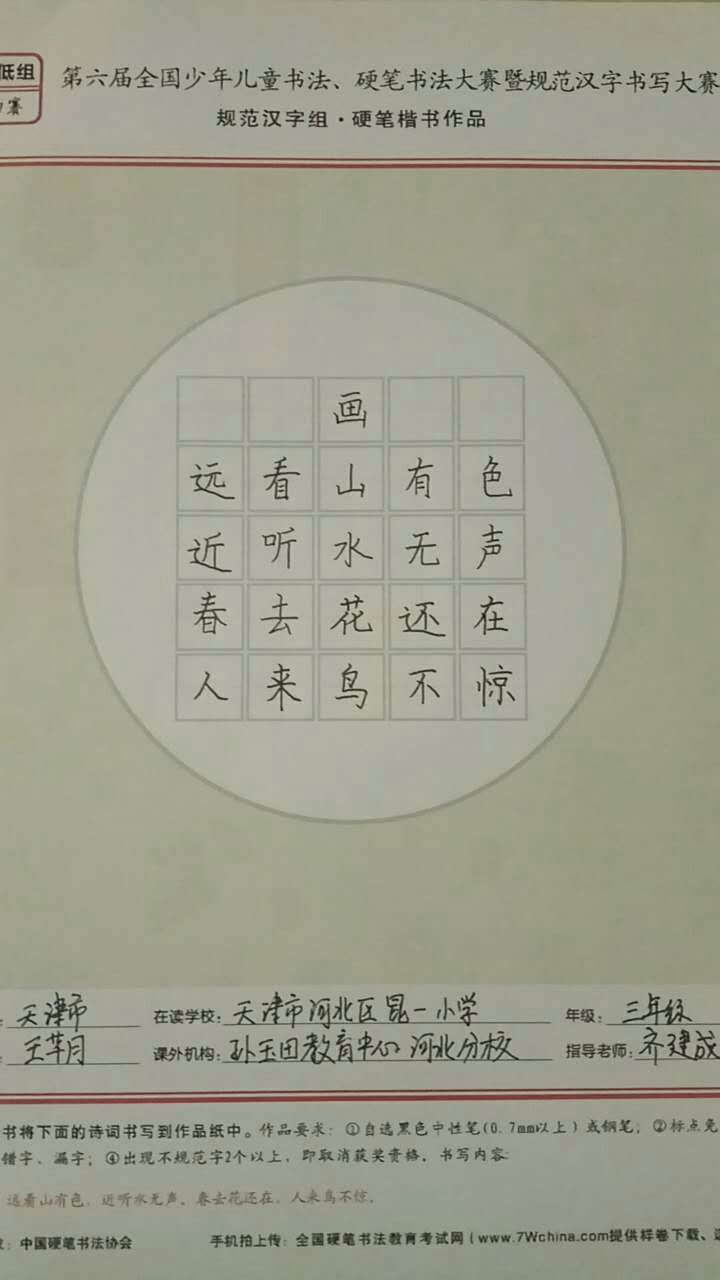 低组
赛
第六届全国少年儿童书法、硬笔书法大赛暨规范汉字书写大赛
规范汉字组·硬笔楷书作品
画
远看山有色
近听水无声
春去花还在
人来鸟不惊
天津市 在读学校: 天津市河北区昆一小学 年级: 三年级
王芊月 课外机构: 孙玉田教育中心 河北分校 指导老师: 齐建成
书将下面的诗词书写到作品纸中。作品要求: ①自选黑色中性笔(0.7mm以上)或钢笔; ②标点免
错字、漏字; ④出现不规范字2个以上, 即取消获奖资格。书写内容:
远看山有色。近听水无声。春去花还在。人来鸟不惊。
: 中国硬笔书法协会 手机拍上传: 全国硬笔书法教育考试网(www.7Wchina.com提供样卷下载、